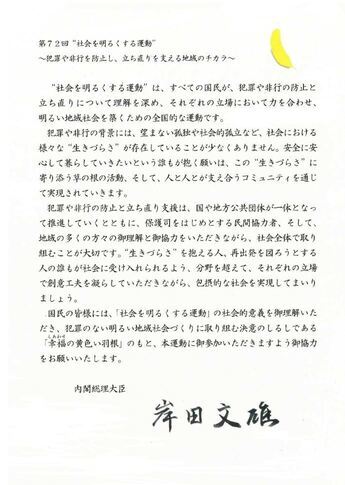 第７２回 “社会を明るくする運動”
～犯罪や非行を防止し、立ち直りを支える地域のチカラ～
“社会を明るくする運動”は、すべての国民が、犯罪や非行の防止と
立ち直りについて理解を深め、それぞれの立場において力を合わせ、
明るい地域社会を築くための全国的な運動です。
犯罪や非行の背景には、望まない孤独や社会的孤立など、社会における
様々な“生きづらさ”が存在していることが少なくありません。安全に安
心して暮らしていきたいという誰もが抱く願いは、この“生きづらさ”に
寄り添う草の根の活動、そして、人と人とが支え合うコミュニティを通じ
て実現されていきます。
犯罪や非行の防止と立ち直り支援は、国や地方公共団体が一体となっ
て推進していくとともに、保護司をはじめとする民間協力者、そして、
地域の多くの方々の御理解と御協力をいただきながら、社会全体で取り
組むことが大切です。“生きづらさ”を抱える人、再出発を図ろうとする
人の誰もが社会に受け入れられるよう、分野を超えて、それぞれの立場
で創意工夫を凝らしていただきながら、包摂的な社会を実現してまいり
ましょう。
国民の皆様には、「社会を明るくする運動」の社会的意義を御理解いた
だき、犯罪のない明るい地域社会づくりに取り組む決意のしるしである
「幸福の黄色い羽根」のもと、本運動に御参加いただきますよう御協力
をお願いいたします。
内閣総理大臣
岸田文雄